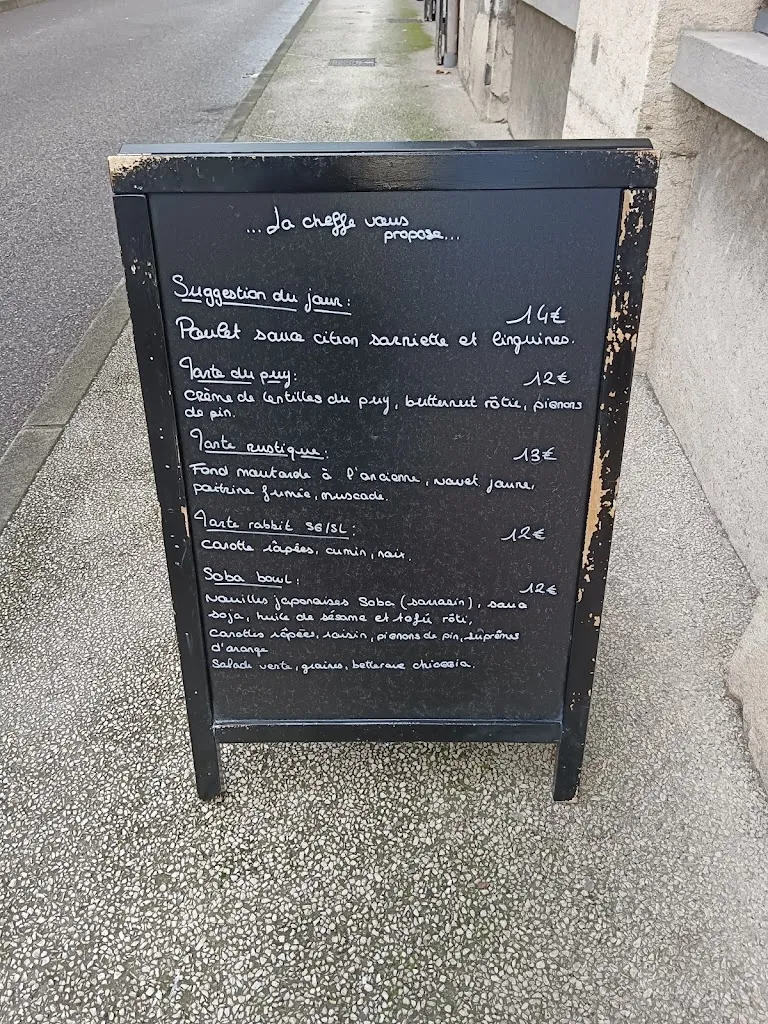 ...La cheffe vous
propose...
Suggestion du jour:
14€
Poulet sauce citron sarriette et linguines.
Tarte du puy:
12€
crème de lentilles du puy, butternut rôtie, pignons
de pin.
Tarte rustique:
13€
Fond moutarde à l'ancienne, navet jaune,
poitrine fumée, muscade.
Tarte rabbit SG/SL:
12€
carotte râpées, cumin, noix.
Soba bowl:
12€
Nouilles japonaises Soba (sarrasin), sauce
soja, huile de sésame et tofu rôti,
carottes râpées, raisin, pignons de pin, suprêmes
d'orange
Salade verte, graines, betterave chioggia.